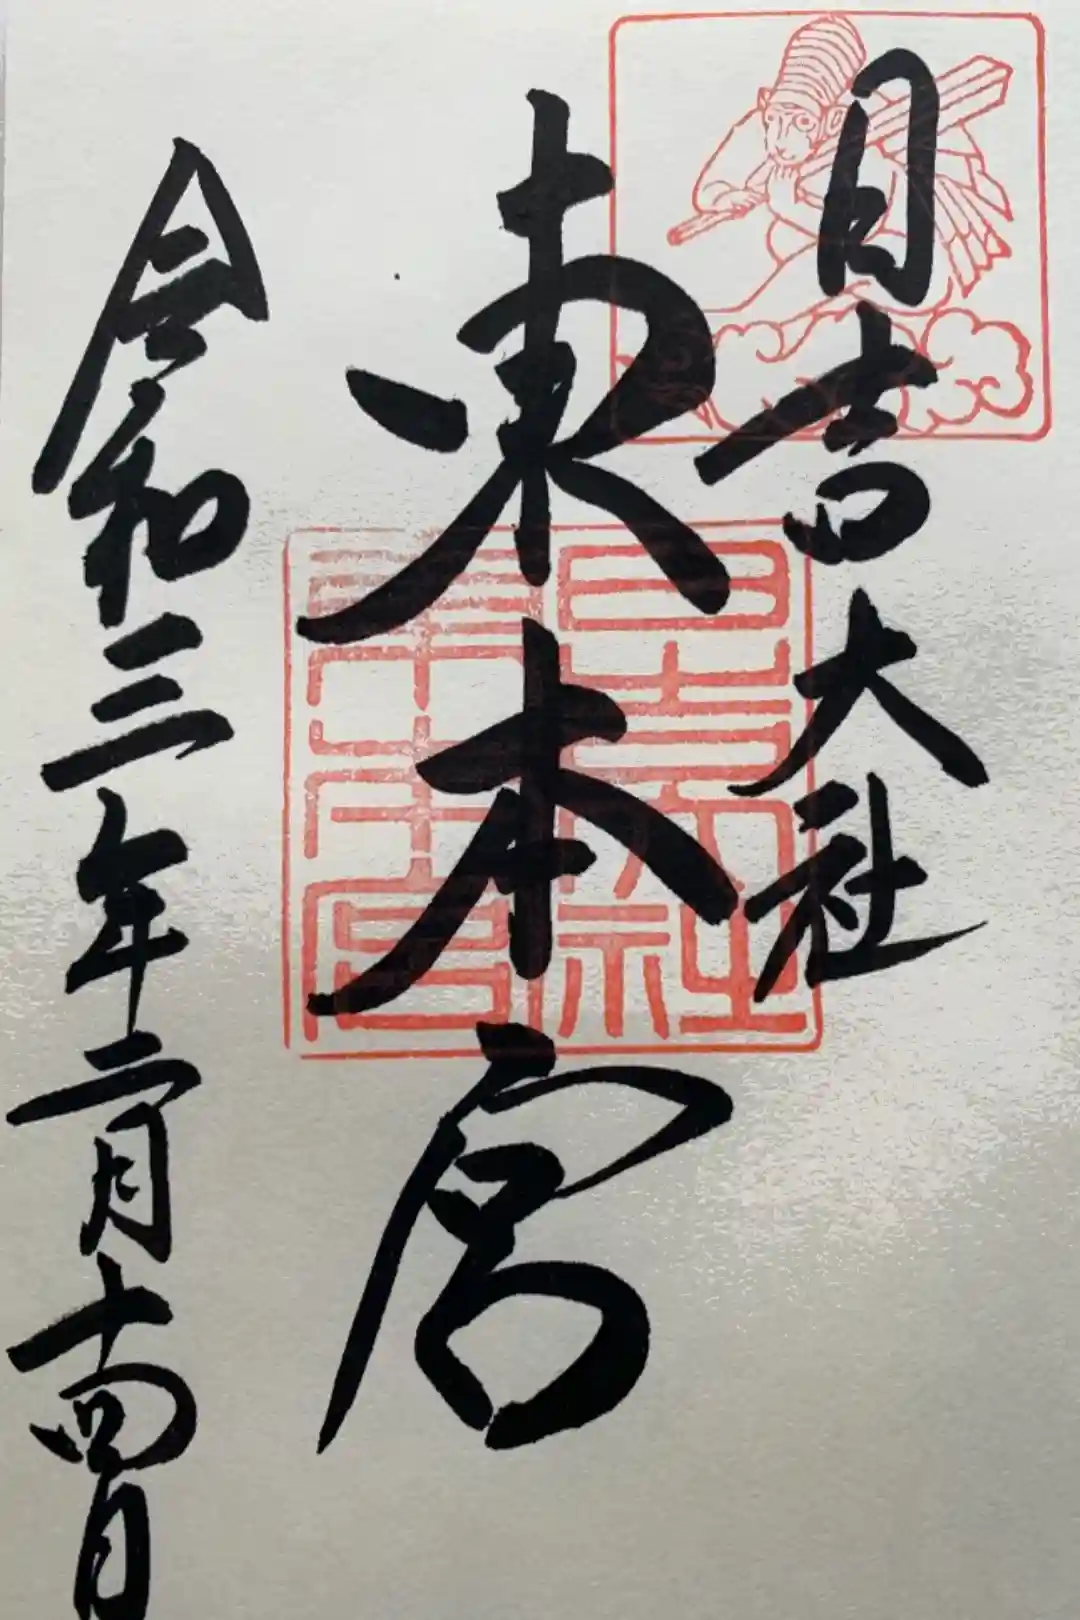 日吉大社
東本宮
令和三年二月十四日
日吉大社